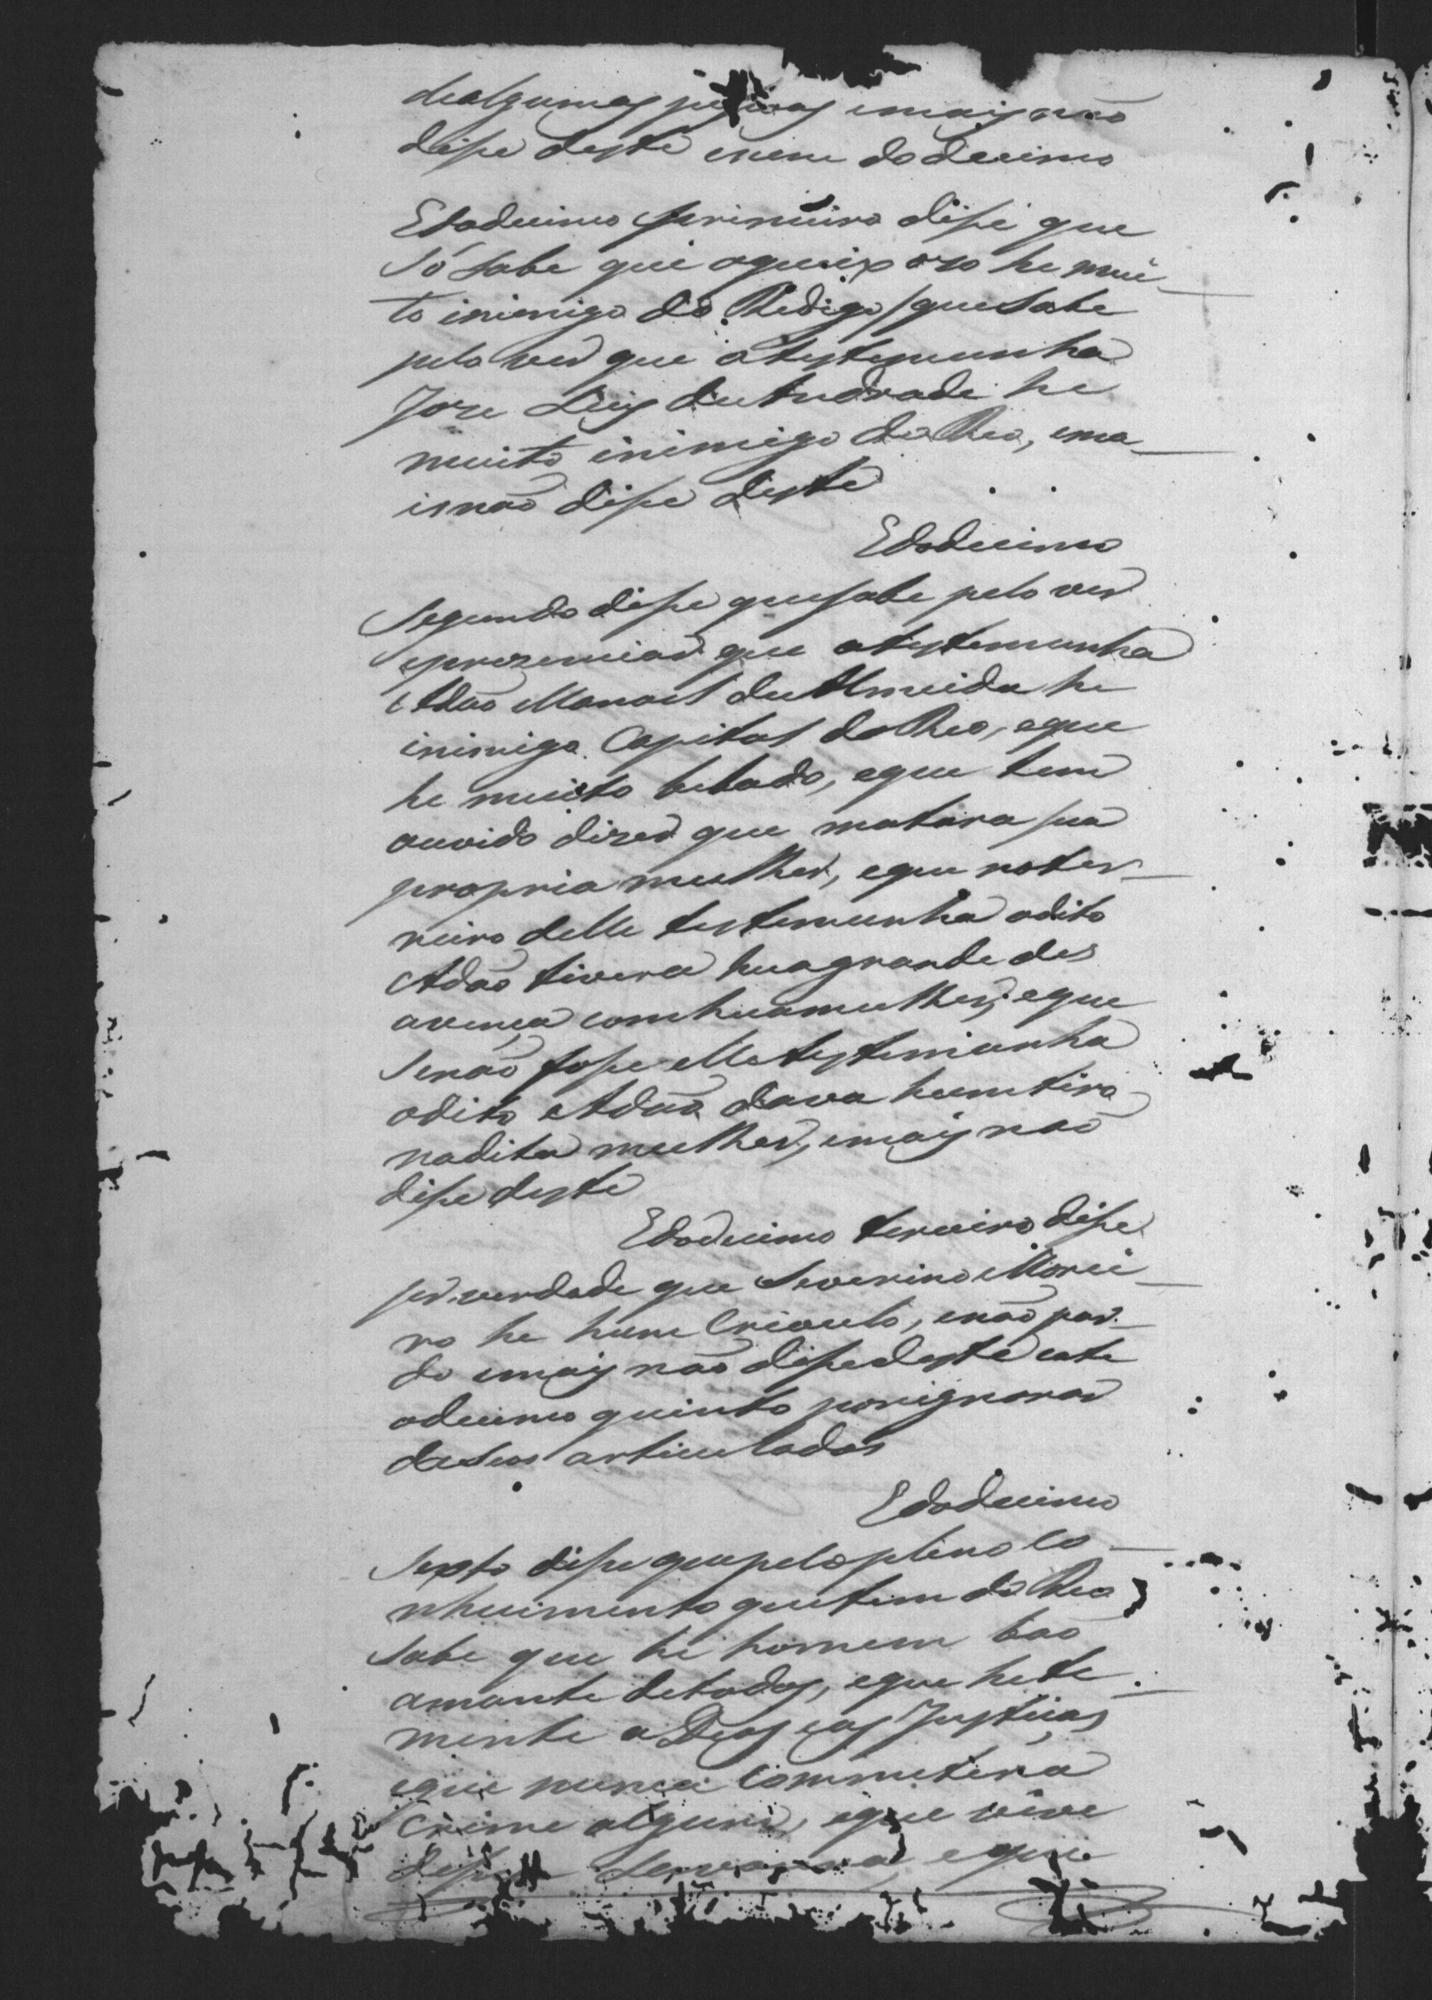 dealgumas pessoas emais não
disse deste enem do decimo
Edodecimo primeiro disse que
só sabe que oqueixozo he mui
to inimigo do Redigo que sabe
pelo ver que atestemunha
Joze Luis de Andrade he
muito inimigo do Reo, ema
isnão disse deste
Edodecimo
Segundo disse quesabe pelo ver
eprezenciar que atestemunha
Adão Manoel de Almeida he
inimigo Capital do Reo, eque
he muito bebado, eque tem
ouvido dizer que matara sua
propria mulher, eque noter
reiro delle testemunha odito
Adão tivera huagrande des
avença comhuamulher, eque
senão fosse elle testemunha
odito Adão dava humtiro
nadita mulher, emais não
disse deste
Edodecimo terceiro disse
ser verdade que Severino Morei
ra he hum Crioulo, enão par
do emais não disse deste eate
odecimo quinto por ignorar
deseus articulados
Edodecimo
Sexto disse que pelo pleno co
nhecimento quetem do Reo
sabe que he homem bão
amante detodos, eque hete
mente a Deos eas Justiças
eque nunca Commetera
Crime algum, eque vive
eque